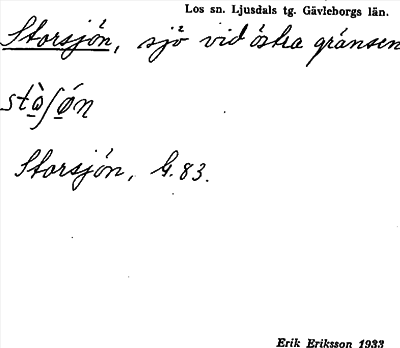 Los sn. Ljusdals tg. Gävleborgs län.
Storsjön, sjö vid östra gränsen
stò̱ʃǿ̱n
Storsjön, G. 83.
Erik Eriksson 1933